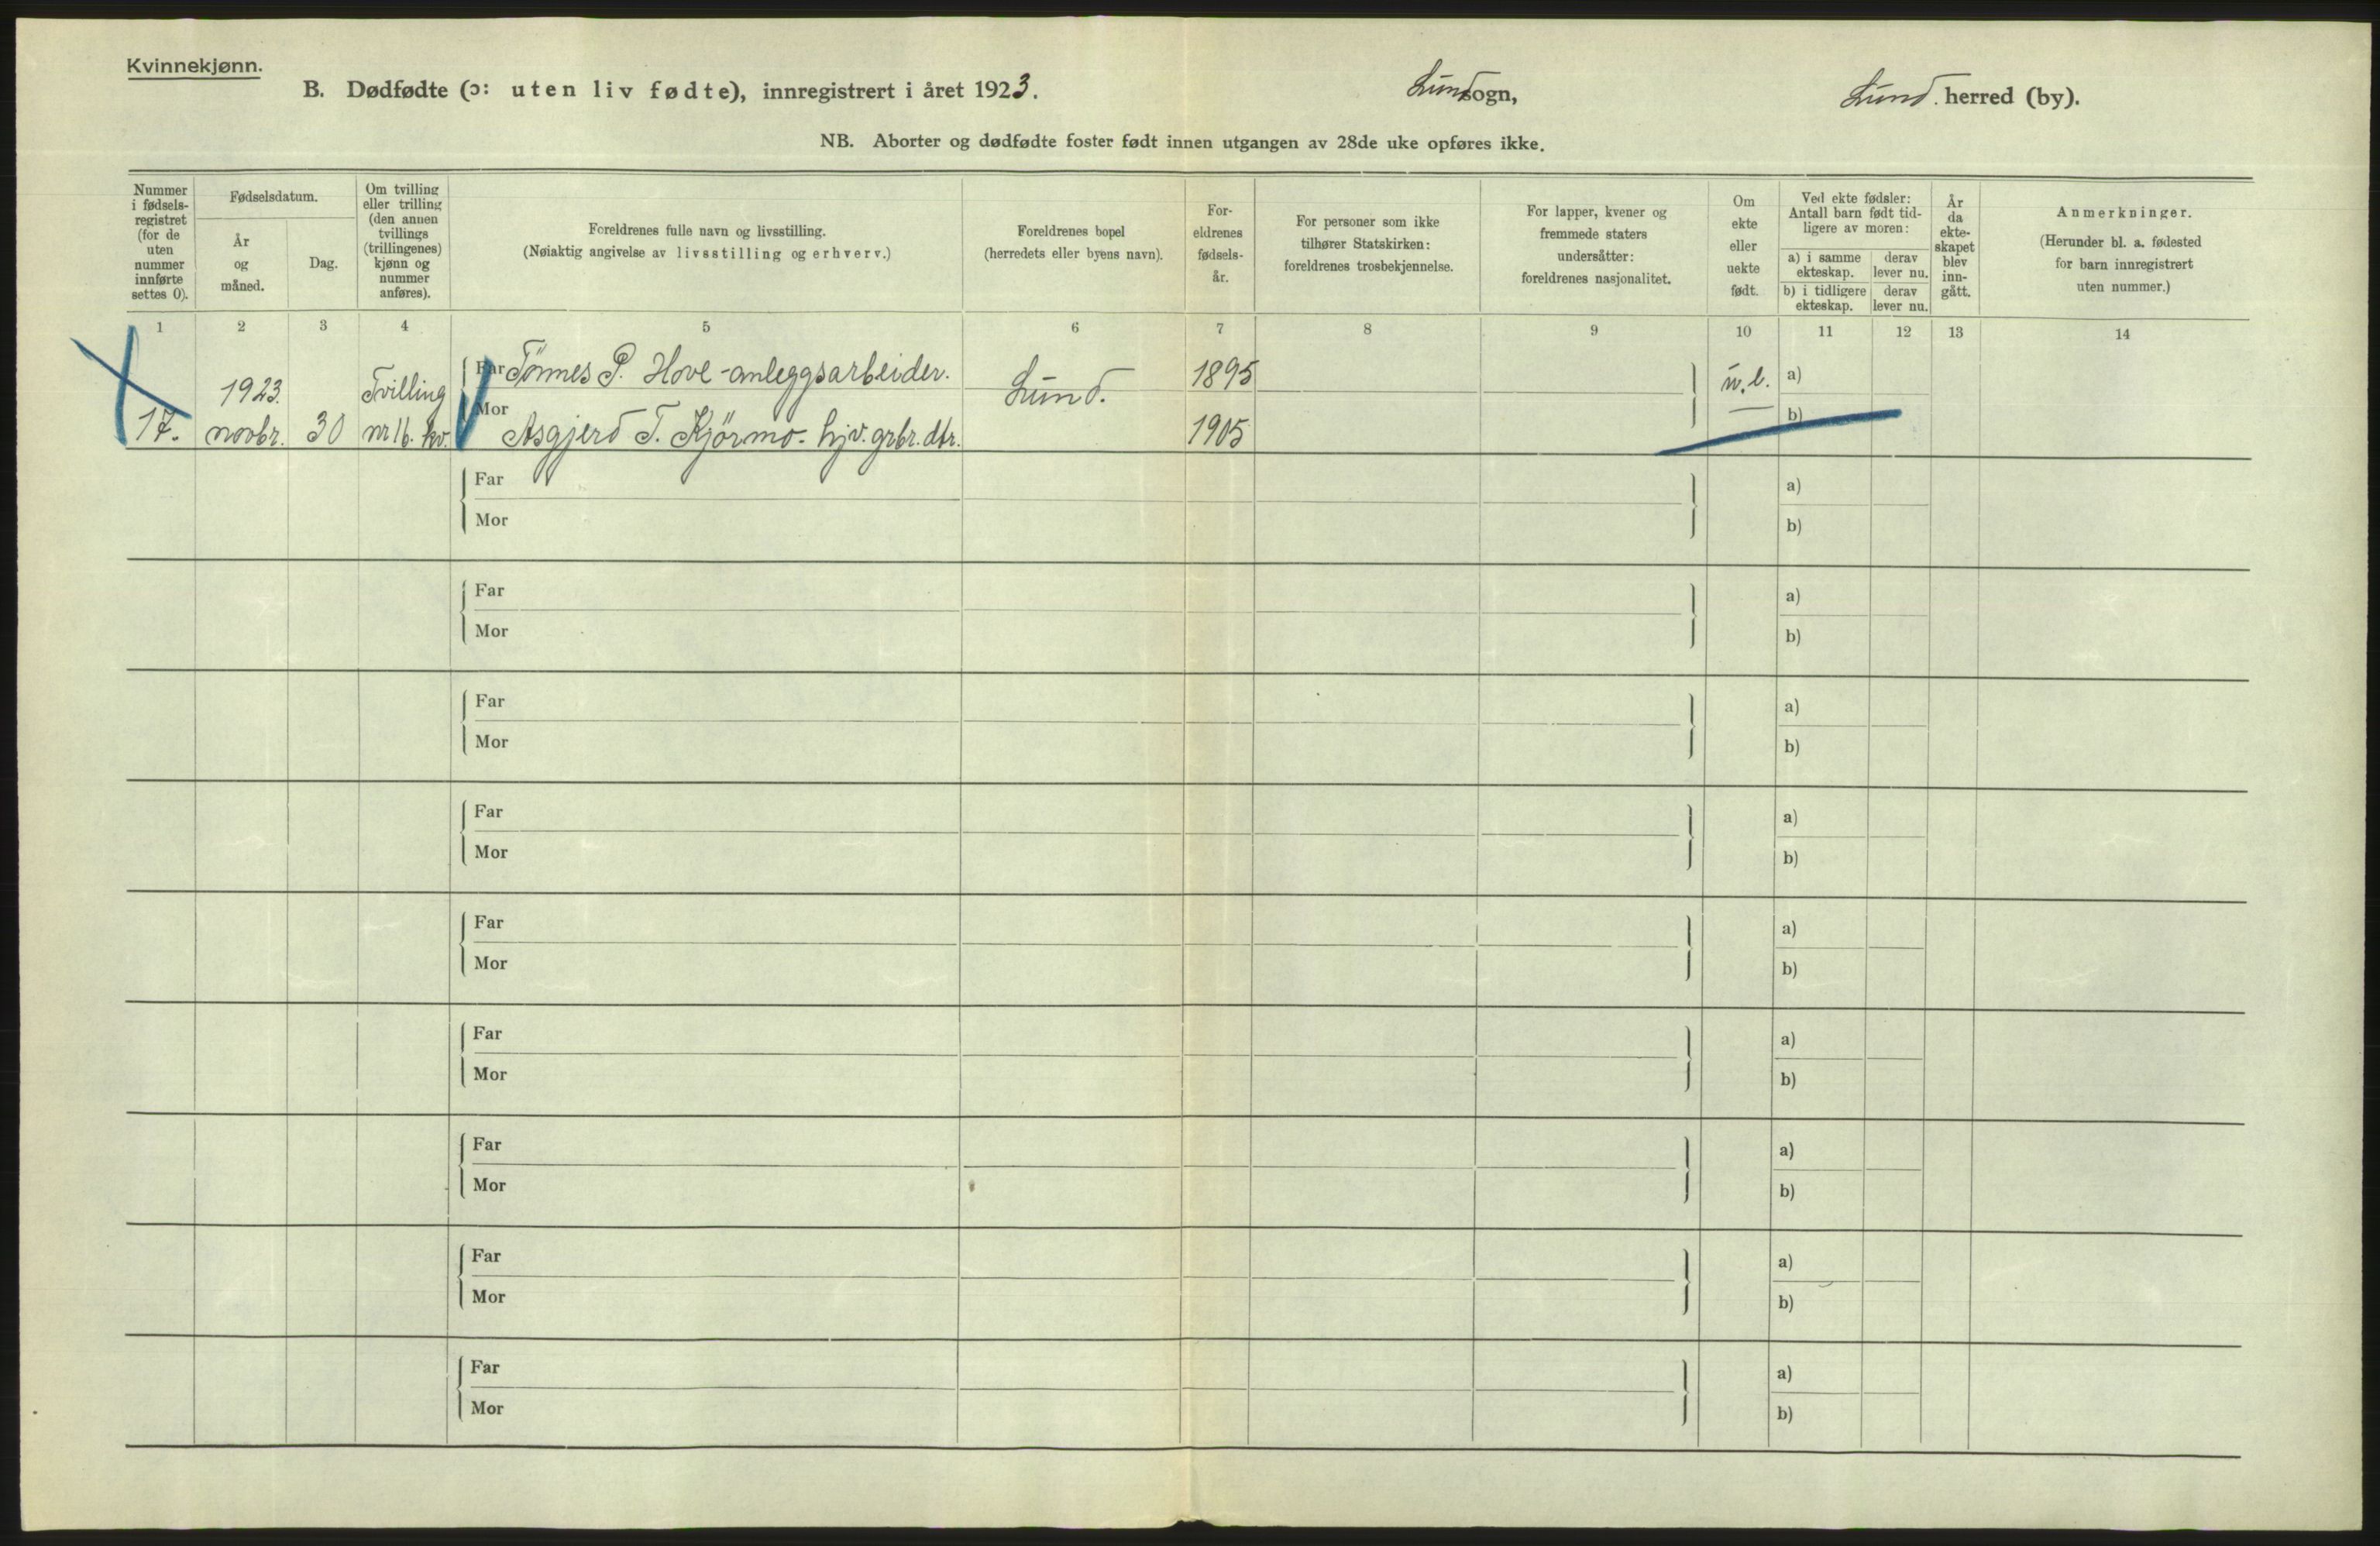 Kvinnekjønn.
B. Dødfødte (ɔ: uten liv fødte), innregistrert i året 1923. Lund sogn, Lund. herred (by).
NB. Aborter og dødfødte foster født innen utgangen av 28de uke opføres ikke.
Nummer i fødsels-registret (for de uten nummer innførte settes 0).
Fødselsdatum.
År og måned.
Dag.
Om tvilling eller trilling (den annen tvillings (trillingenes) kjønn og nummer anføres).
Foreldrenes fulle navn og livsstilling.
(Nøiaktig angivelse av livsstilling og erhverv.)
Foreldrenes bopel
(herredets eller byens navn).
For-eldrenes fødsels-år.
For personer som ikke tilhører Statskirken: foreldrenes trosbekjennelse.
For lapper, kvener og fremmede staters undersåtter: foreldrenes nasjonalitet.
Om ekte eller uekte født.
Ved ekte fødsler: Antall barn født tid-ligere av moren:
a) i samme ekteskap.
derav lever nu.
b) i tidligere ekteskap.
derav lever nu.
År da ekte-skapet blev inn-gått.
Anmerkninger.
(Herunder bl. a. fødested for barn innregistrert uten nummer.)
1 2 3 4 5 6 7 8 9 10 11 12 13 14
1923. Tvilling Far Tönnes P. Hove - anleggsarbeider. Lund. 1895 a)
17. novbr. 30 nr 16. kv. Mor Asgjerd T. Kjörmo - hjv. grbr. dtr. 1905 b)
Far a)
Mor b)
Far a)
Mor b)
Far a)
Mor b)
Far a)
Mor b)
Far a)
Mor b)
Far a)
Mor b)
Far a)
Mor b)
Far a)
Mor b)
Far a)
Mor b)